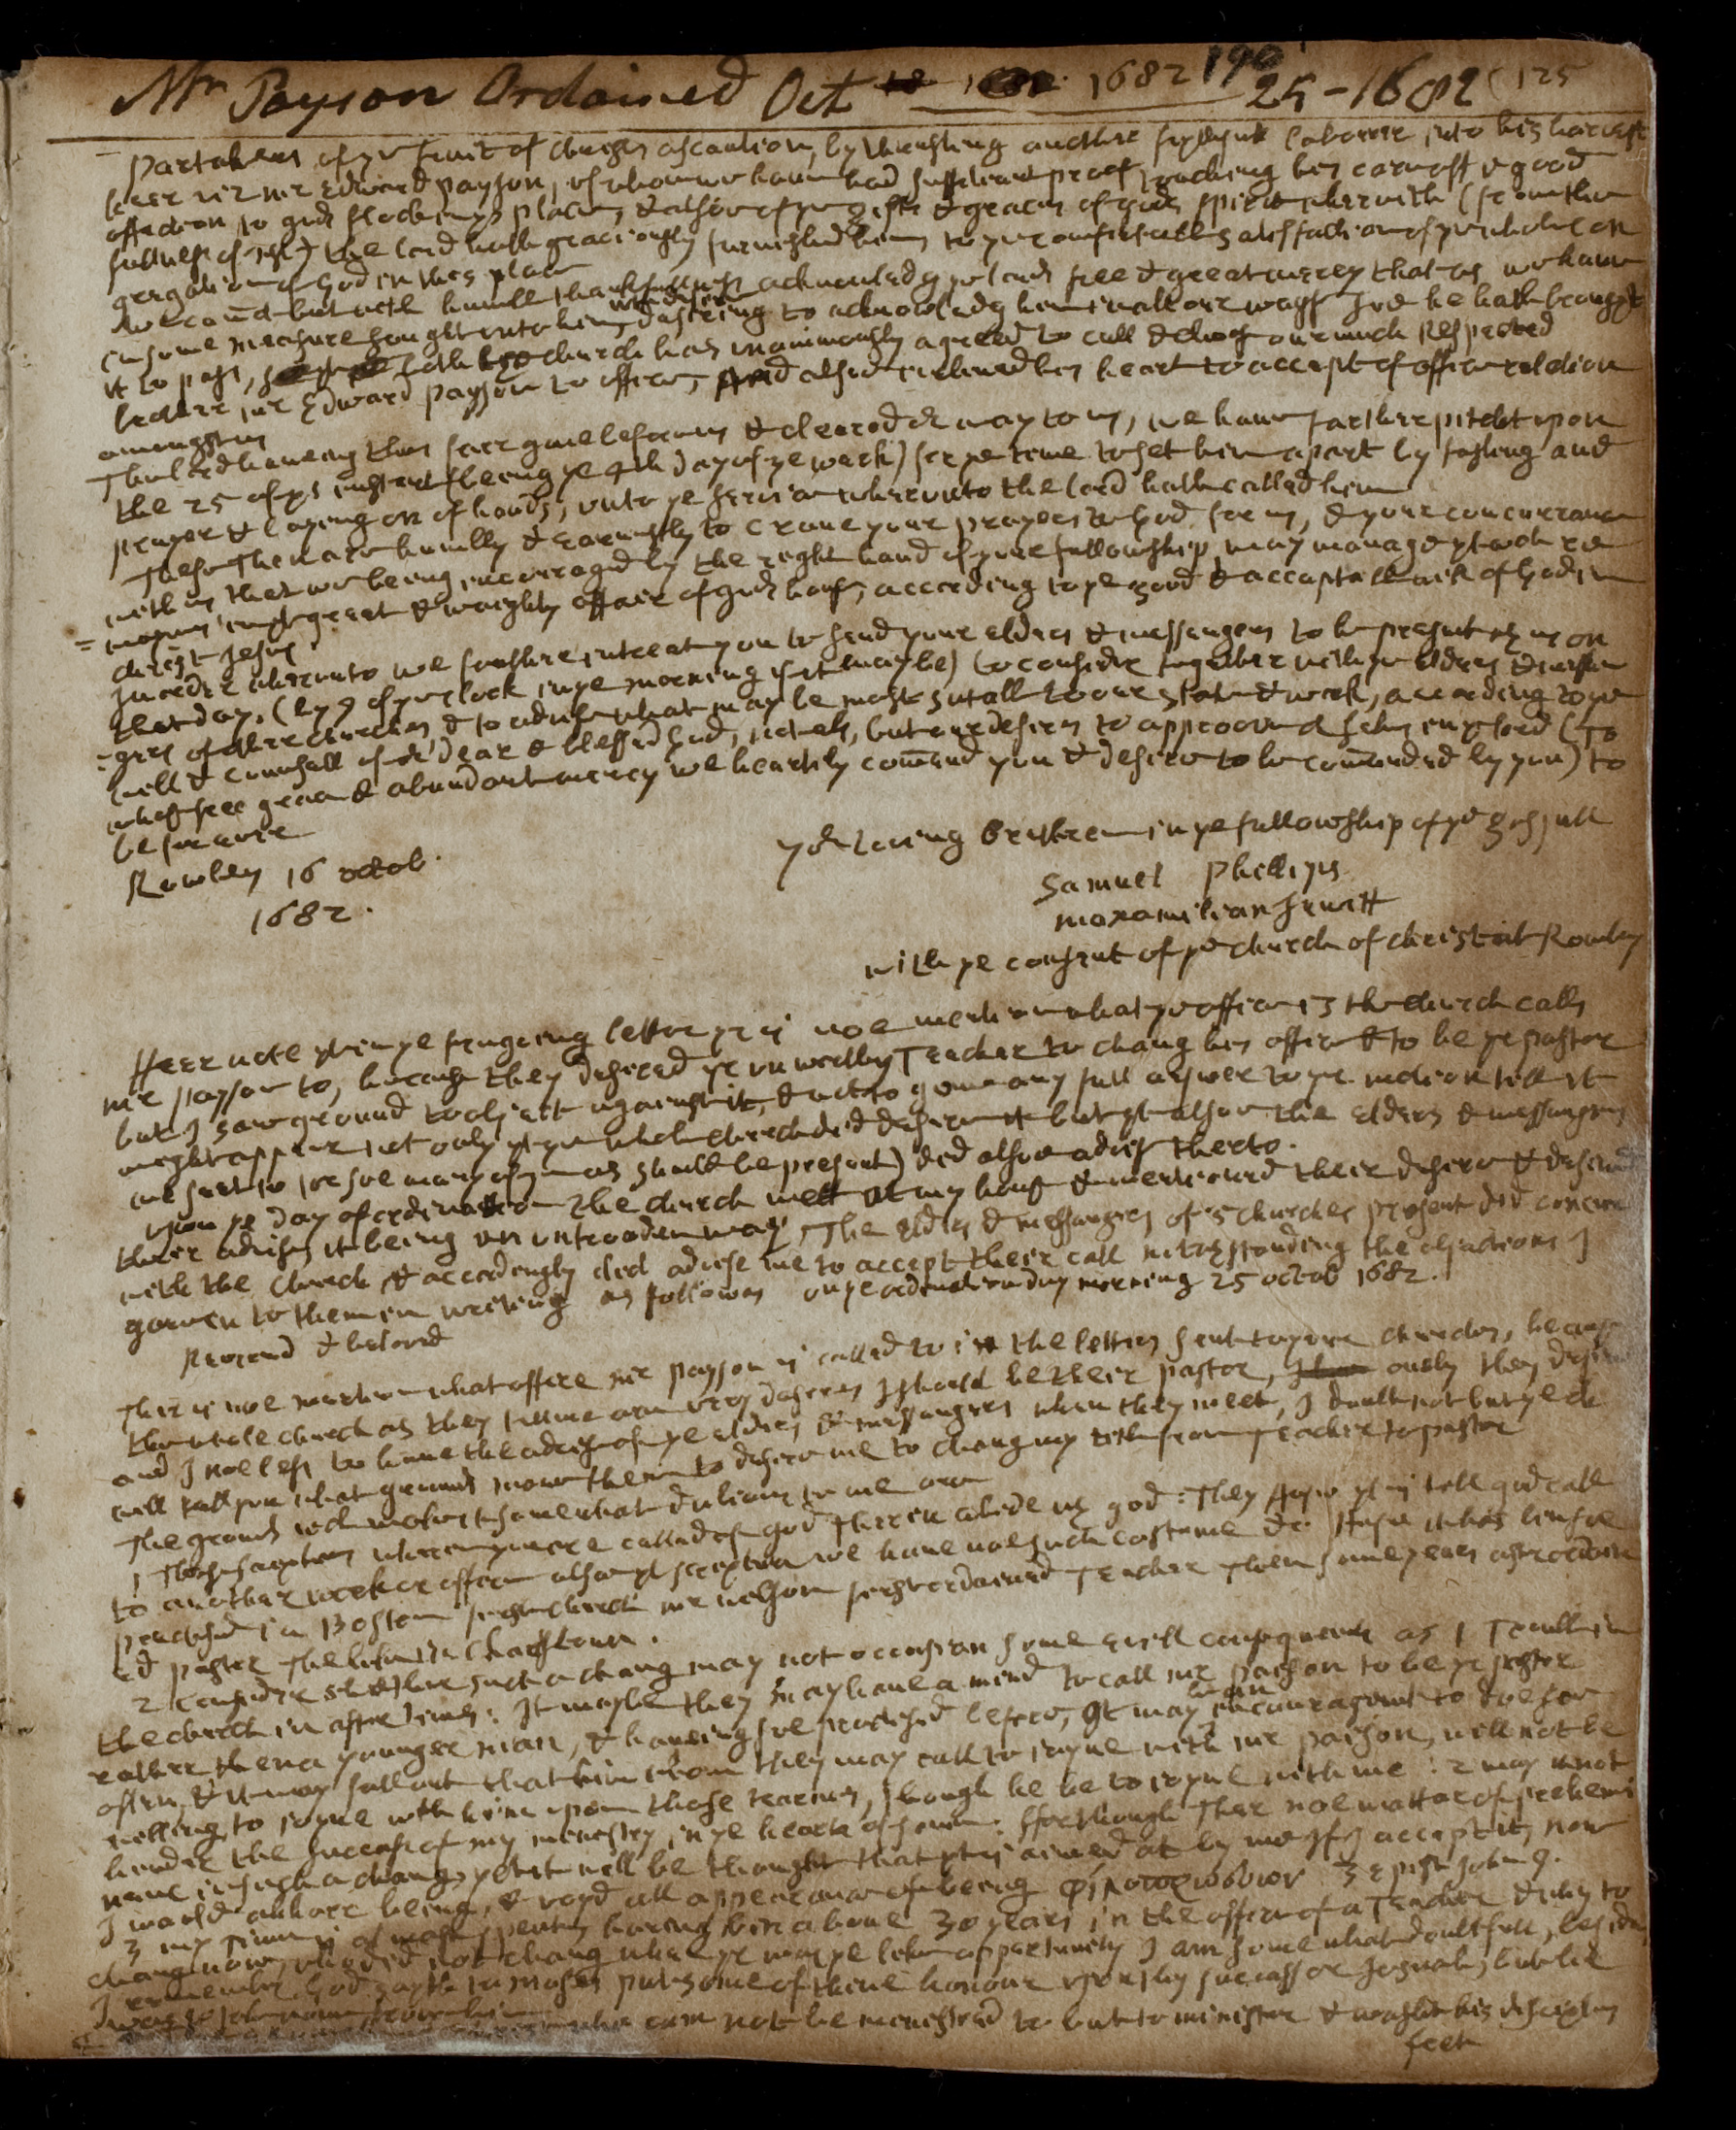 190
Mr Payson Ordained Oct 1682 25-1682 (125
partakers of ye fruit of christs ascention, by thrusting another labourer into his harvest
heer viz mr Edward payson, of whom we haue had suffitient proof touching his earnest & good
affection to gods flock in ys place, & also of ye gifts & graces of gods spirit wherwith (from the
fullness of christ) the lord hath graciously furnished him to ye satisfaction of ye whole con
gregation of God in this place
we canot but with humble thankfullness acknowledg ye lords free & great mercy that as we haue
in some measure sought unto him, desireing to acknowledg him in all our ways soe he hath brought
it to pass, church has unanimously agreed to call & chose our much respected
brother mr Edward payson to office, And also inclined his heart to accept of office relation
amongst us
The lord haueing thus farr gone before us & cleered or way to us, we haue farther pitcht upon
the 25 of ys instant (being ye 4th day of ye week) for ye time to set him apart by fasting and
prayer & laying on of hands, unto ye seruice wherunto the lord hath called him
These Then are humbly & earnestly to craue your prayers to God for us, & your concurrance
with us that we being incouraged by the right hand of your fellowship may manage
great & weighty affair of gods house, according to ye good & acceptable will of God in
christ Jesus
In order wherunto we further intreat you to send your elders & messengers to be present with us on
that day, (by 9 of ye clock in ye morning if it may be) to consider together with ye elders & messen
=gers of other churches & to advise what may be most sutable to our state & work, according to ye
will & counsell of or dear & blessed God, not els, but our desires to approoue or selues in ye lord (to
whose free grace & abundant mercy we heartily comend you & desire to be comended by you) to
be sincere
yor loueing brethren in ye fellowship of ye gospell
Rowley 16 octob.
1682.
Samuel Phillips
maxamilian Jewitt
with ye consent of ye church of christ at Rowley
Heer note yt in ye forgoeing letter yr is noe mention what ye office is the church calls
mr payson to, because they desired ye unworthy Teacher to chang his office & to be ye pastor
but I saw ground to object against it, & not to giue any full answer to ye motion till it
might appear not only yt ye whole church did desire it but yt also the elders & messengers
we sent to (or soe many of ym as should be present) did also advise therto.
Upon ye day of ordination the church mett at my house & mentioned their desire & desired
their advise, it being an untrodden way, The elders & messengers of 5 churches present did concurr
with the church & accordingly did advise me to accept their call notwithstanding the objections I
gaue in to them in writeing as followes on ye ordination day morning 25 octob 1682.
Reverend & beloved
Ther is noe mention what office mr payson is called to in the letters sent to your churches, because
the whole church as they tell me are very desirous I should be their pastor, they desired
and I noe less to haue the advise of ye elders & messengers when they meet, I doubt not but ye ch
will tell you what grounds moue them to desire me to chang my title from Teacher to pastor
The grounds wch make it somewhat dubious to me are
1 Those scriptures wherin ye were called of god Therin abide with god: They say yt is till god call
to another work or office also yt scripture we haue noe such custome &c
practised in Boston first church mr wilson first ordained Teacher then some years after ordain
ed paster The like in Charlstown.
2 Consider whether such a chang may not occasion some evill consequence as 1 Trouble in
the church in after times: It may be they may haue a mind to call mr paison to be ye pastor
rather then a younger man, & haueing soe practised before, It may be an incouragment to doe soe
often, & it may fall out that him whom they may call to joyne with mr paison, will not be
willing to joyne with him upon those tearmes, though he be to joyne with me: 2 may it not
hinder the success of my ministry in ye hearts of some: ffor though Ther noe matter of prehemi
nenc in such a chang, yet it will be thought that ytt is aimed at by me If I accept it, now
I would abhore being, & voyd all appearance of being φιλοπρωτευων 3 epist John 9.
3 my time is at most spent, having bin aboue 30 years in the office of a Teacher & why to
chang now, who did not chang when yr was ye like opportunety I am somewhat doubtfull, besides
I remember God sayth to moses put some of thine honour upon thy successor Joshuah, but he
cam not to be ministred to but to minister & washed his disciples
feet